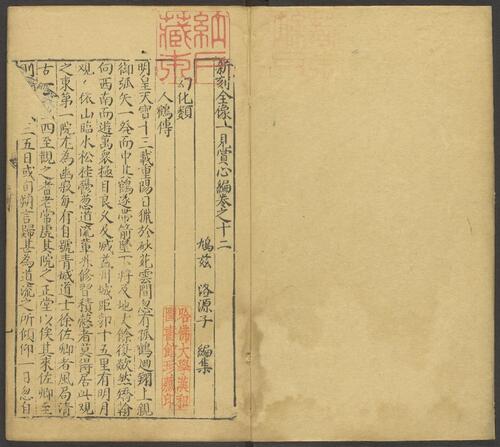 新刻全像一見賞心編卷之十二
鳩茲 洛源子 編集
幻化類
人鶴傳
明皇天寶十三載重陽日獵於沙苑雲間忽有孤鶴迴翔上親
御弧矢一發而中其鶴遂帶箭墜下將及地丈餘復歘然矯翰
向西南而逝萬衆極目良久乃滅益州城距郭十五里有明月
觀依山臨水松桂鬱葱道流輩非修習精慤者莫得居此觀
之東第一院尤為幽寂每有自號青城道士徐佐卿者風局清
古 四至觀之耆老常虛其院之正堂以俟其來佐卿至
則 三五日或旬朔言歸甚為道流之所傾仰一日忽自
哈佛大學漢和圖書館珍藏印